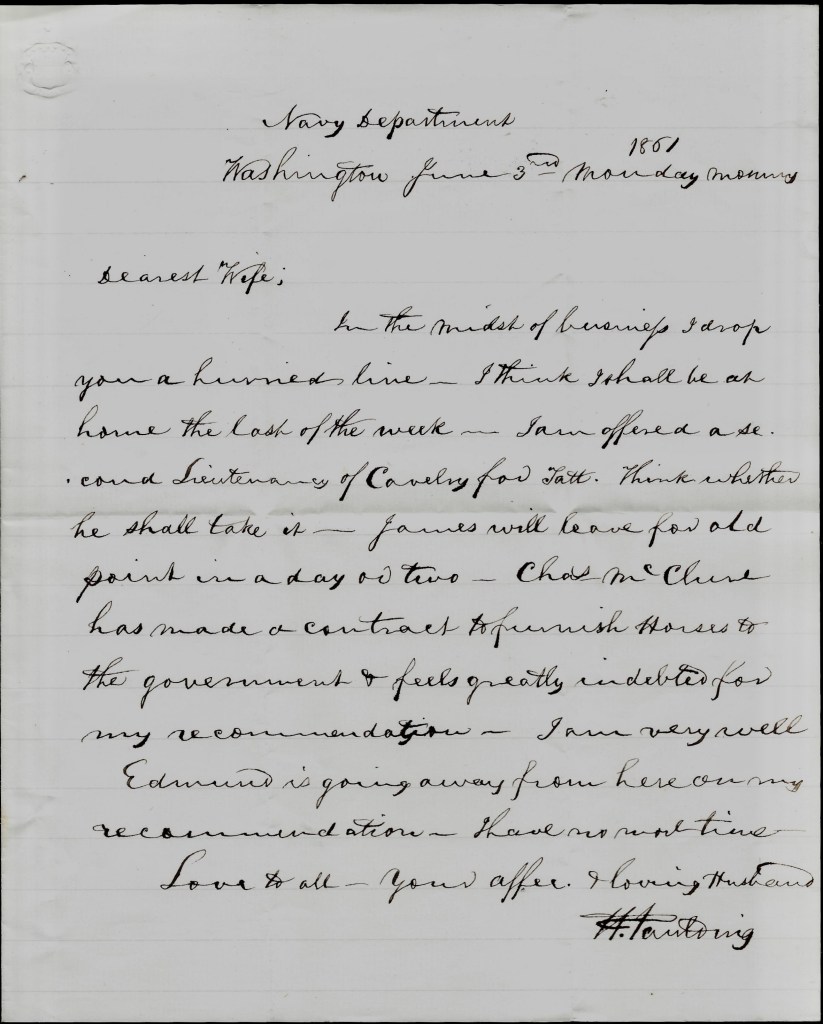 Navy Department
1861
Washington June 3rd Monday morning
Dearest Wife;
In the midst of business I drop
you a hurried line — I think I shall be at
home the last of the week — I am offered a se.
.cond Lieutenancy of Cavelry for Tatt. Think whether
he shall take it — James will leave for old
point in a day or two — Chas McClure
has made a contract to furnish Horses to
the government & feels greatly indebted for
my recommendation — I am very well
Edmund is going away from here on my
recommendation — I have no more time
Love to all — Your affec. & loving Husband
H. Paulding